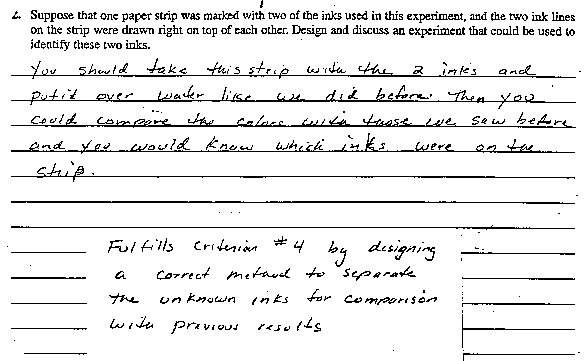 2. Suppose that one paper strip was marked with two of the inks used in this experiment, and the two ink lines
on the strip were drawn right on top of each other. Design and discuss an experiment that could be used to
identify these two inks.
You should take this strip with the 2 inks and
put it over water like we did before. Then you
could compare the colors with those we saw before
and you would know which inks were on the
strip.
Fulfills Criterion #4 by designing
a correct method to separate
the unknown inks for comparison
with previous results